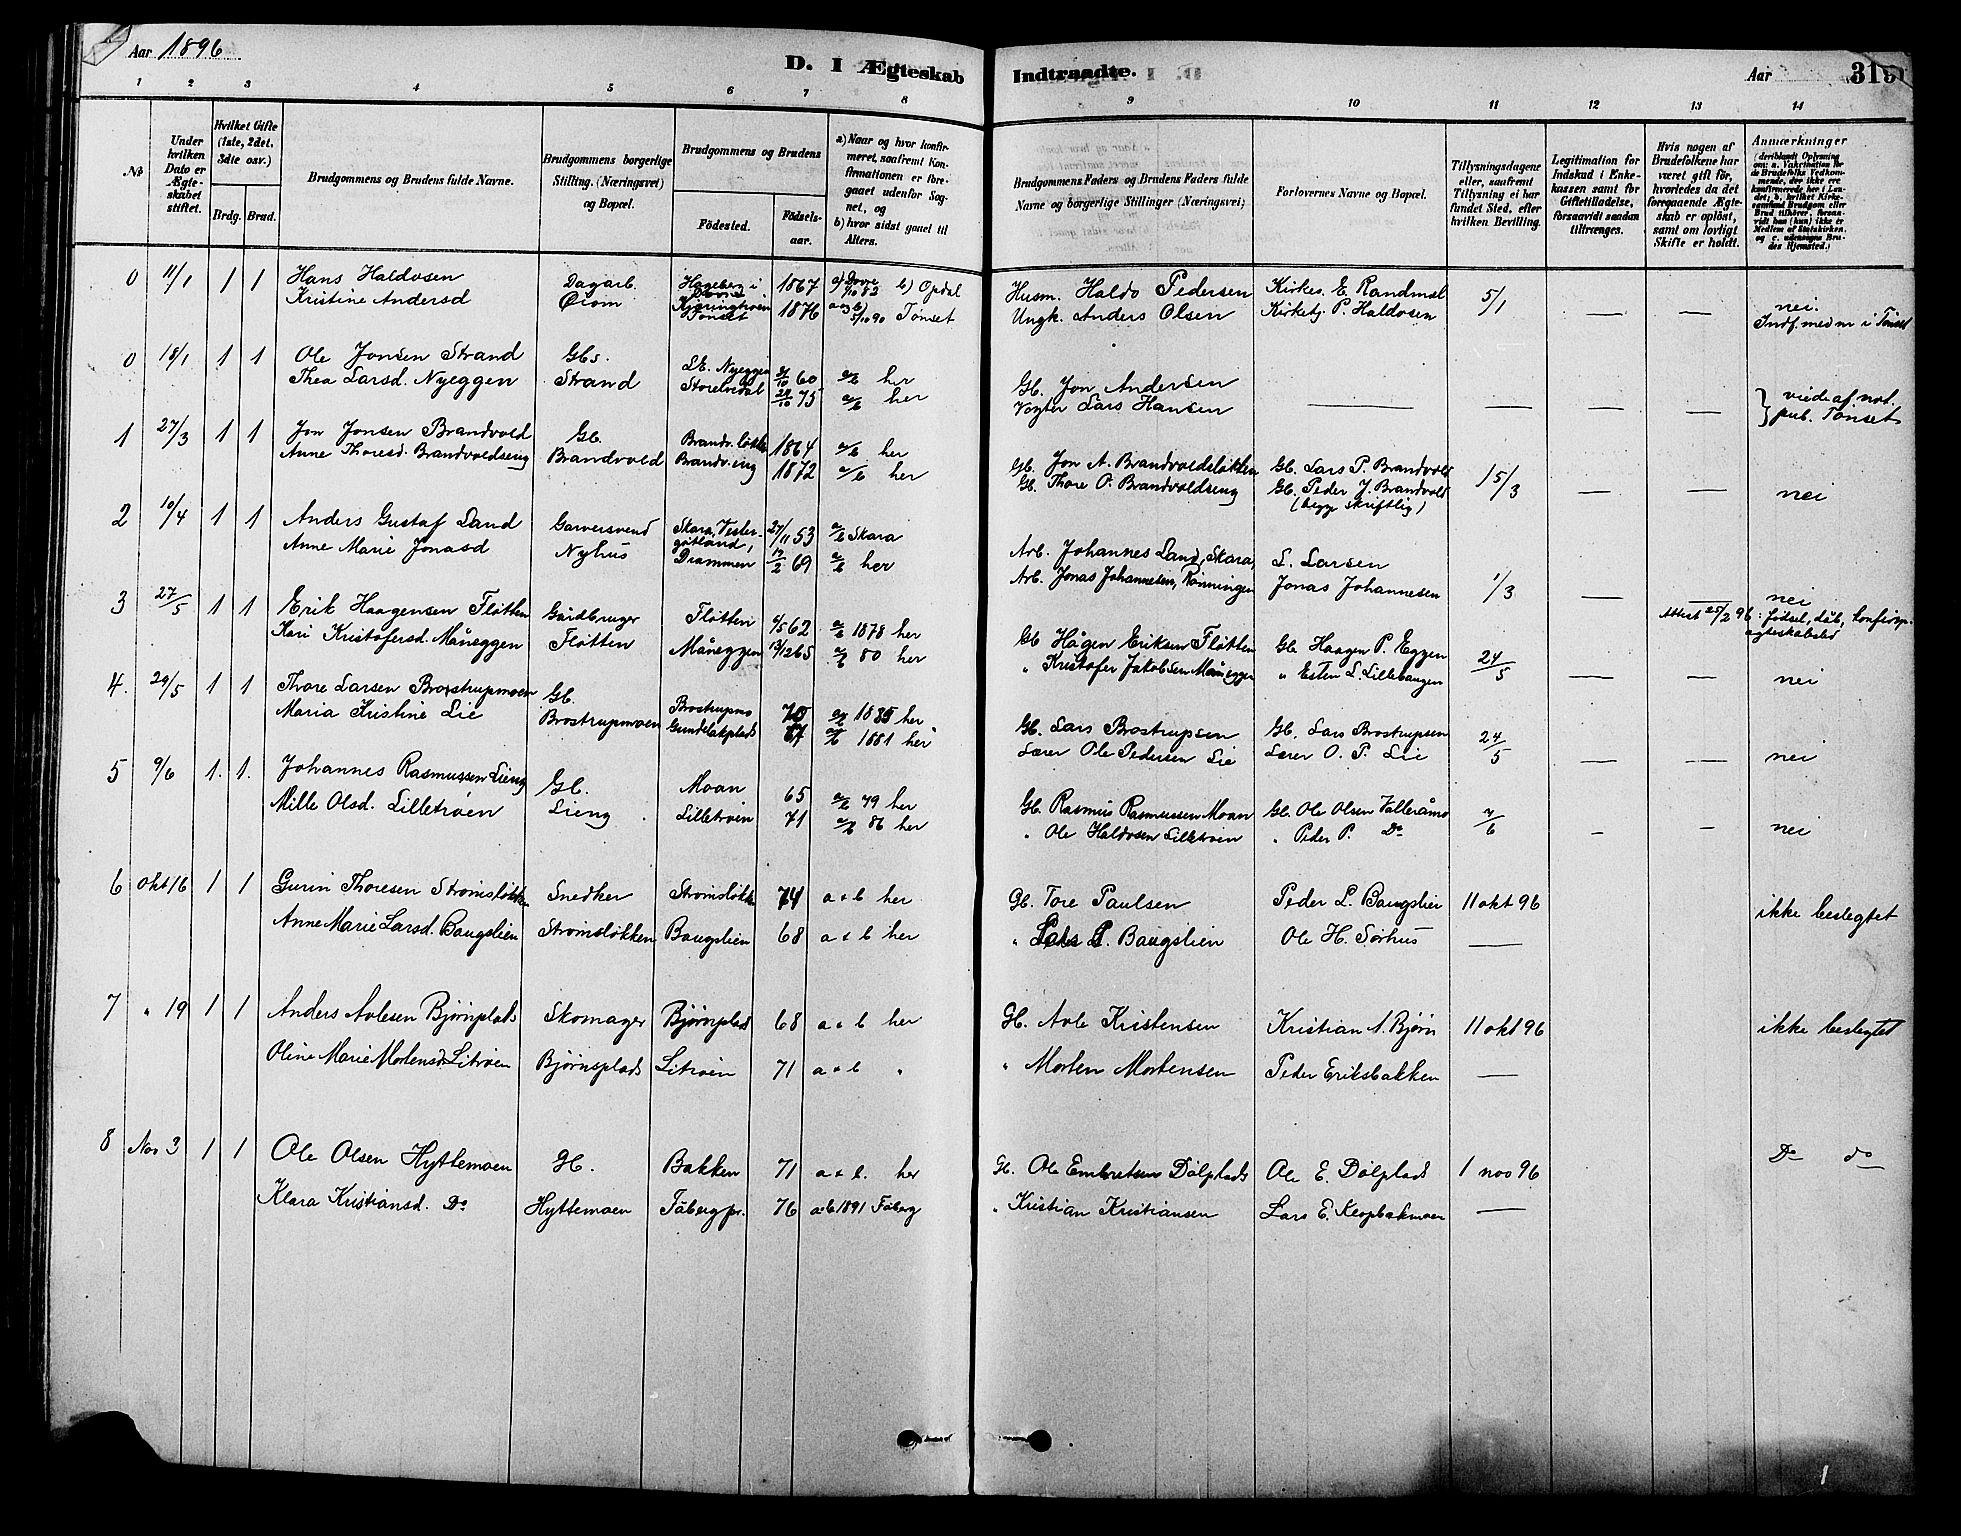 Aar 1896.
D. I Ægteskab Indtraadte.
Aar 315
1 2 3 4 5 6 7 8 9 10 11 12 13 14
No
Under hvilken Dato er Ægteskabet stiftet.
Hvilket Gifte (1ste, 2det, 3die osv.)
Brdg. Brud.
Brudgommens og Brudens fulde Navne.
Brudgommens borgerlige Stilling. (Næringsvei) og Bopæl.
Brudgommens og Brudens
Fødested. Fødselsaar.
a) Naar og hvor konfirmeret, saafremt Konfirmationen er foregaaet udenfor Sognet, og
b) hvor sidst gaaet til Alters.
Brudgommens Faders og Brudens Faders fulde Navne og borgerlige Stillinger (Næringsvei)
Forlovernes Navne og Bopæl.
Tillysningsdagene eller, saafremt Tillysning ei har fundet Sted, efter hvilken Bevilling.
Legitimation for Indskud i Enkekassen samt for Giftetilladelse, forsaavidt saadan tiltrænges.
Hvis nogen af Brudefolkene har været gift før, hvorledes da det foregaaende Ægteskab er opløst, samt om lovligt Skifte er holdt.
Anmærkninger
0 11/1 1 1 Hans Haldosen Dagarb. 1867 b) Opdal Husm. Haldo Pedersen Kirkes. E. Randmæl 5/1 — — nei.
Kristine Andersd Tønset 1876 5/10 90 Tønset Ungk. Anders Olsen Kirketj. P. Haldosen Indf. med nr i Tønset
0 18/1 1 1 Ole Jonsen Strand Gbs. Nyeggen 60 a/b her Gb. Jon Andersen — — — — viede af not.
Thea Larsd. Nyeggen Strand Storelvdal 29/10 75 a/b her Vogter Lars Hansen pub. Tønset
1 27/3 1 1 Jon Jonsen Brandvold Gb. Brandv. løkke 1864 a/b her Gb. Jon A. Brandvoldsløkken Gb. Lars P. Brandvold 15/3 — — nei
Anne Thoresd. Brandvoldseng Brandvold Brandv. eng 1872 a/b her Gb. Thore O. Brandvoldseng Gb. Peder J. Brandvold
(begge skriftlig)
2 10/4 1 1 Anders Gustaf Land Garversvend Skara, Vestergøtland, 27/11 53 a/b Skara Arb. Johannes Land, Skara, L. Larsen 1/3 — — nei
Anne Marie Jonasd Nyhus Drammen 19/2 69 a/b her Arb. Jonas Johannesen, Rønningen Jonas Johannesen
Attest 25/2 96: fødsel, dåb, konfirm.
3 27/5 1 1 Erik Haagensen Fløtten Gårdbruger Fløtten 4/5 62 a/b 1878 her Gb Hågen Eriksen Fløtten Gb. Haagen P. Eggen 24/5 — — nei
Kari Kristofersd. Måneggen Fløtten Måneggen 13/12 65 a/b 80 her " Kristofer Jakobsen Måneggen " Esten L. Lillebaugen
4. 29/5 1 1 Thore Larsen Brostrupmoen Gb. Brostrupmo 70 a/b 1885 her Gb. Lars Brostrupsen Gb. Lars Brostrupsen 24/5 — — nei
Maria Kristine Lie Brostrupmoen Gundelakplads 67 a/b 1881 her Lærer Ole Pedersen Lie Lærer O. P. Lie
5 9/6 1. 1. Johannes Rasmussen Lieng Gb. Moan 65 a/b 79 her Gb. Rasmus Rasmussen Moan Gb. Ole Olsen Valleråmo 7/6 — — nei
Mille Olsd. Lilletrøen Lieng Lilletrøen 71 a/b 86 her " Ole Haldosen Lilletrøen " Peder P. Do
6 Okt 16 1 1 Gurin Thoresen Strømsløkken Snedker Strømsløkken 74 a + b her Gb. Tore Paulsen Peder L. Baugslien 11 okt 96 ikke beslegtet
Anne Marie Larsd. Baugslien Strømsløkken Baugslien 68 a + b her " Lars P. Baugslien Ole H. Sørhus —
7 " 19 1 1 Anders Avlesen Bjørnplads Skomager Bjørnplads 68 a + b her Gb. Avle Kristensen Kristian A. Bjørn 11 okt 96 ikke beslegtet
Oline Marie Mortensd. Litrøen Bjørnsplads Litrøen 71 a + b " " Morten Mortensen Peder Eriksbakken —
8 Nov 3 1 1 Ole Olsen Hyttemoen Gb. Bakken 71 a + b. her Gb. Ole Embretsen Dølplads Ole E. Dølplads 1 nov 96 Do do
Klara Kristiansd. Do Hyttemoen Fåberg pr. 76 a+b 1891 Fåberg " Kristian Kristiansen Lars E. Kløpbakmoen —